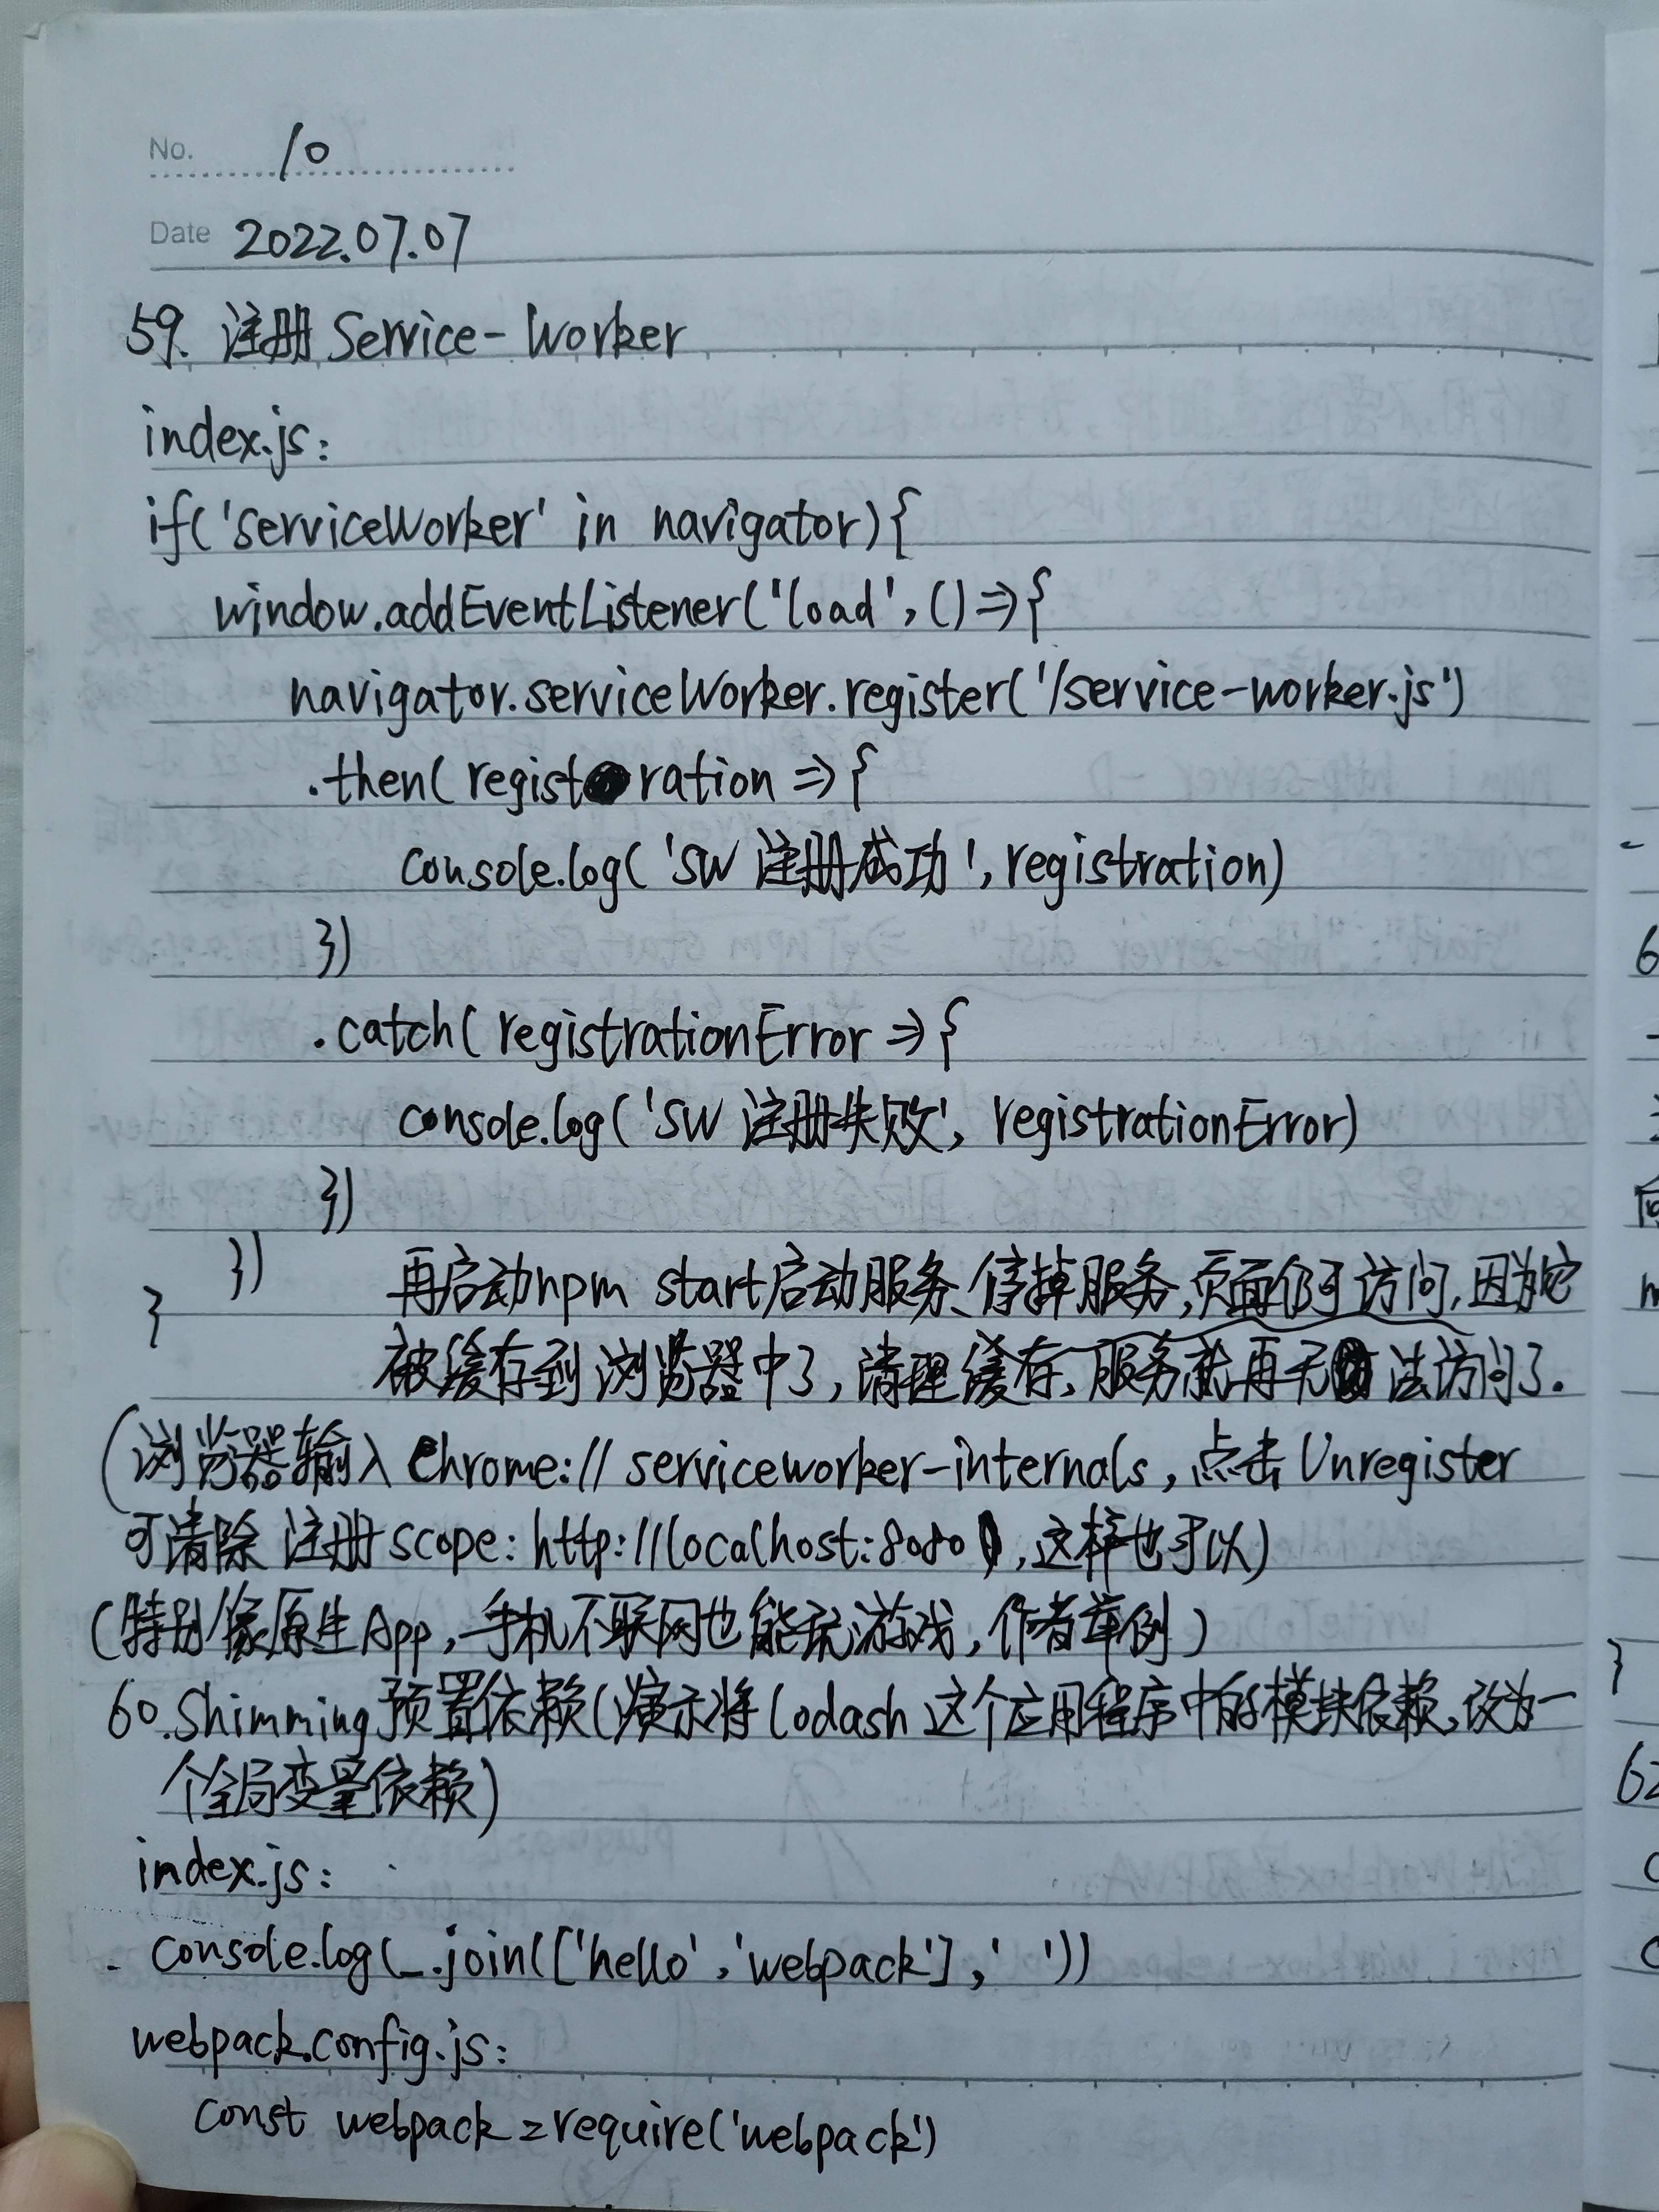 No. 10
Date 2022.07.07
59. 注册 Service-Worker
index.js:
if('serviceWorker' in navigator){
window.addEventListener('load',()=>{
navigator.serviceWorker.register('/service-worker.js')
.then(registration=>{
console.log('SW 注册成功',registration)
})
.catch(registrationError=>{
console.log('SW 注册失败',registrationError)
})
})
}
再启动npm start启动服务、停掉服务,页面仍可访问,因为它
被缓存到浏览器中了,清理缓存,服务就再无法访问了.
(浏览器输入Chrome://serviceworker-internals,点击Unregister
可清除 注册scope:http://localhost:8080,这样也可以)
(特别像原生App,手机不联网也能玩游戏,作者举例)
60.Shimming预置依赖(演示将lodash这个应用程序中的模块依赖,改为一
个全局变量依赖)
index.js:
console.log(_.join(['hello','webpack'],' '))
webpack.config.js:
const webpack=require('webpack')